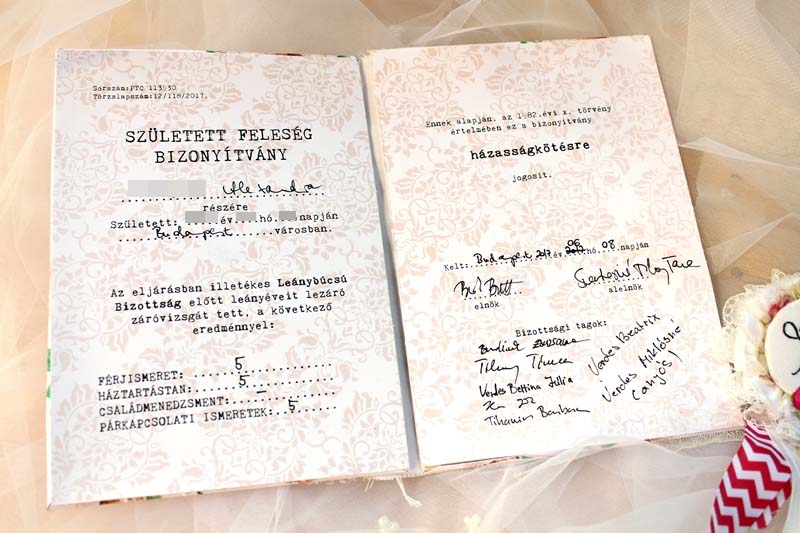 Sorszám:PTC 113930
Törzslapszám:12/118/2017.
SZÜLETETT FELESÉG
BIZONYÍTVÁNY
részére
Született: év hó napján
Budapest városban.
Az eljárásban illetékes Leánybúcsú
Bizottság előtt leányéveit lezáró
záróvizsgát tett, a következő
eredménnyel:
FÉRJISMERET: 5
HÁZTARTÁSTAN: 5
CSALÁDMENEDZSMENT: –
PÁRKAPCSOLATI ISMERETEK: 5
Ennek alapján. az 1982.évi x. törvény
értelmében ez a bizonyítvány
házasságkötésre
jogosit.
Kelt: Budapest 2017 év 06 hó 08. napján
elnök
alelnök
Bizottsági tagok:
Verdes Bettina Júlia
Tihanyi Barbara
Verdes Beatrix
Verdes Miklósné
(anyós)